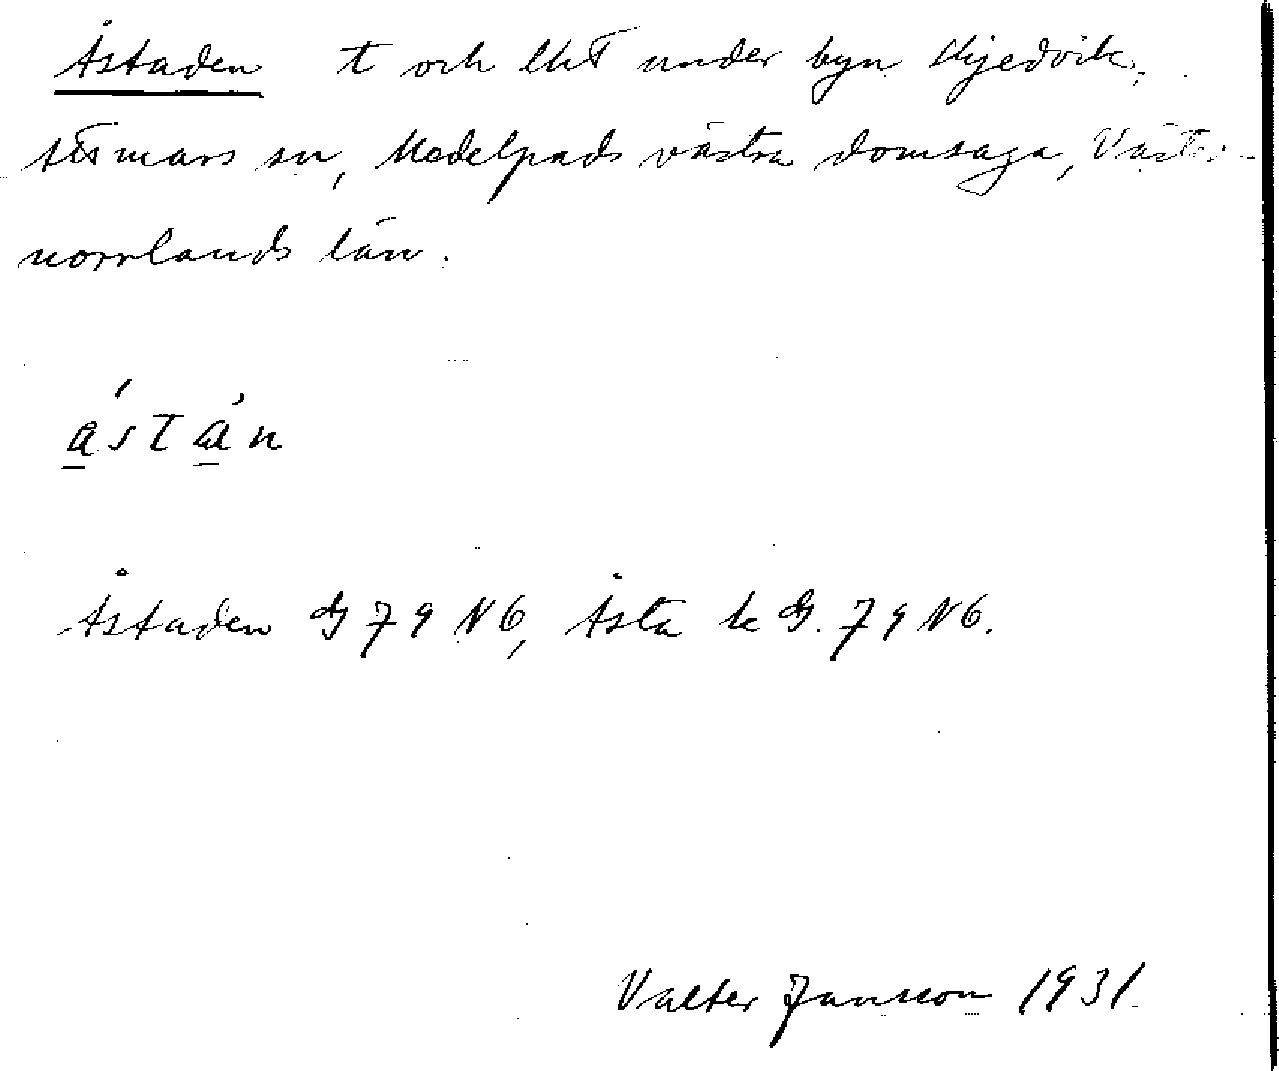 Åstaden t och lht under byn Kjedvik,
Attmars sn, Medelpads västra domsaga, Väster-
norrlands län.
a̲stán
Åstaden G 79 N6, Åsta k G. 79 N6.
Valter Jansson 1931